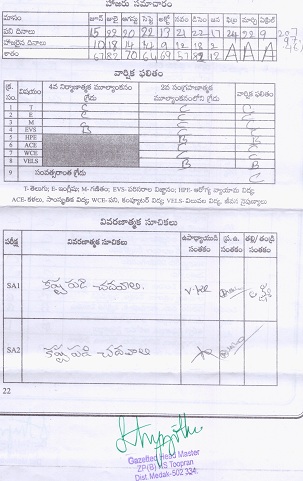 హాజరు సమాచారం
మాసం జూన్ జులై ఆగష్టు సెప్టె అక్టో నవం డిసెం జన ఫిబ్ర మార్చి ఏప్రిల్
పని దినాలు 15 22 20 22 13 21 22 17 24 22 9
హాజరైన దినాలు 10 18 14 14 9 12 18 2 A A A
శాతం 67 82 70 64 69 57 82 12
వార్షిక ఫలితం
క్ర. సం. విషయం 4వ నిర్మాణాత్మక మూల్యాంకనం గ్రేడు 2వ సంగ్రహణాత్మక మూల్యాంకనంలోని గ్రేడు వార్షిక ఫలితం
1 T C C C
2 E C C C
3 M C C C
4 EVS B B
5 HPE
6 ACE
7 WCE
8 VELS B B
9 సంవత్సరాంత గ్రేడు
T-తెలుగు; E-ఇంగ్లీషు; M-గణితం; EVS-పరిసరాల విజ్ఞానం; HPE-ఆరోగ్య వ్యాయామ విద్య;
ACE-కళలు, సాంస్కృతిక విద్య; WCE-పని, కంప్యూటర్ విద్య; VELS-విలువల విద్య, జీవన నైపుణ్యాలు
వివరణాత్మక సూచికలు
పరీక్ష వివరణాత్మక సూచికలు ఉపాధ్యాయుడి సంతకం ప్ర.ఉ. సంతకం తల్లి/తండ్రి సంతకం
SA1 కష్టపడి చదవాలి.
SA2 కష్టపడి చదవాలి
22
Gazetted Head Master
ZP(B) HS Toopran
Dist. Medak-502 334.